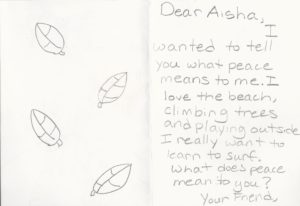 Dear Aisha,
I
wanted to tell
you what peace
means to me. I
love the beach,
climbing trees
and playing outside
I really want to
learn to surf.
What does peace
mean to you?
Your Friend,